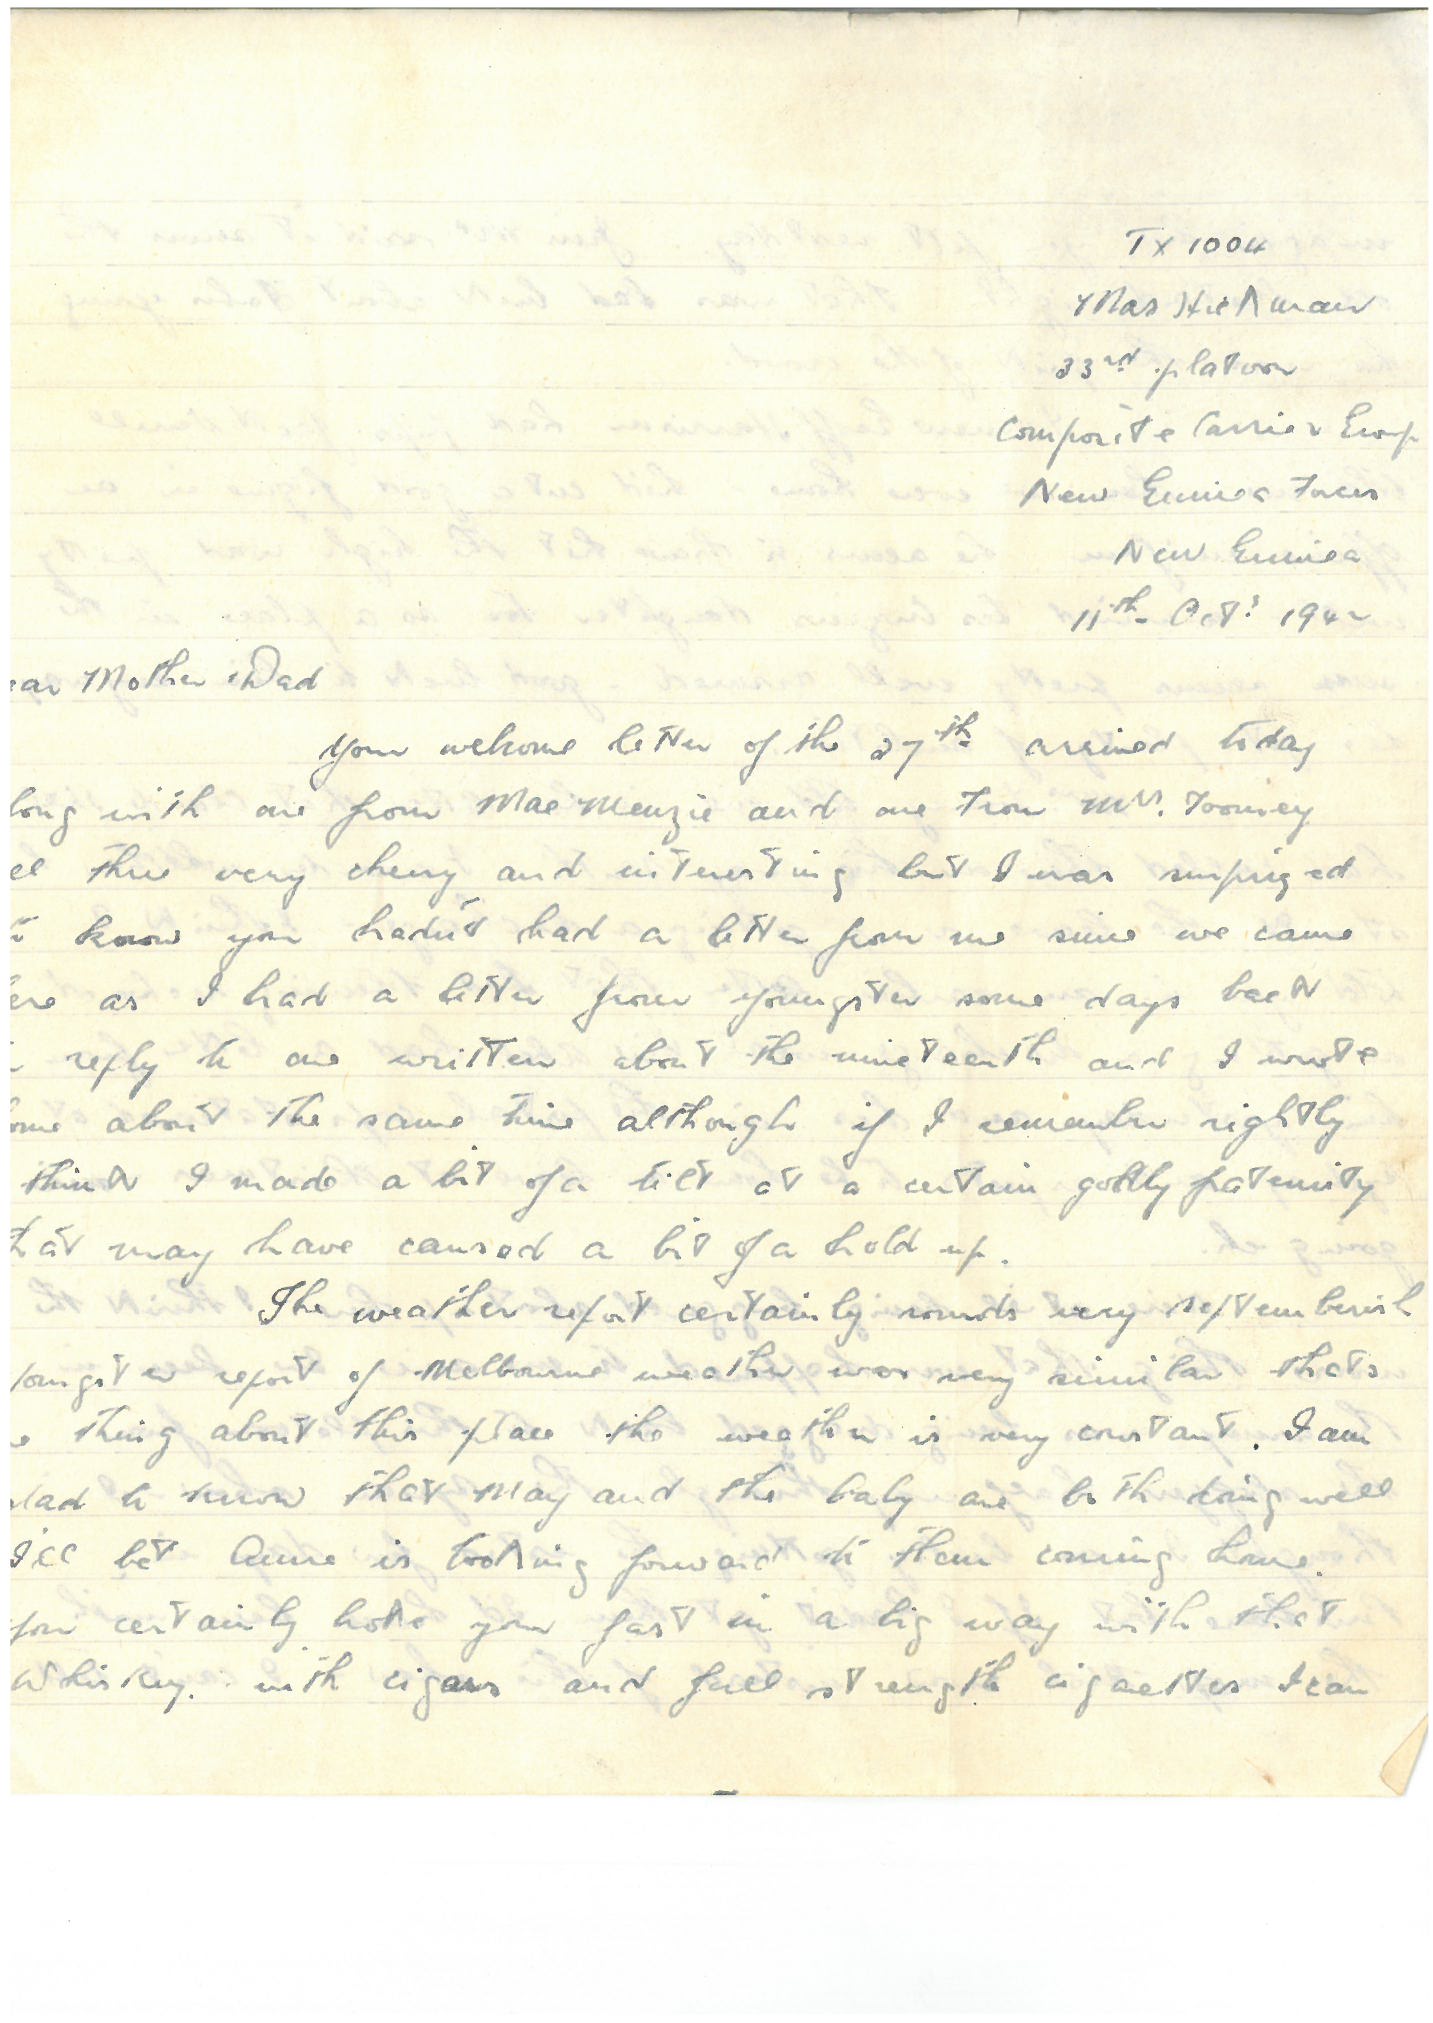 TX 1004
Mas Hickman
33rd platoon
Composite Carrier Group
New Guinea Forces
New Guinea
11th Oct: 1942
ear Mother & Dad
Your welcome letter of the 27th arrived today
long with one from Mae Menzie and one from Mrs. Toomey
ll three very cheery and interesting but I was surprized
to know you hadn't had a letter from me since we came
ere as I had a letter from youngster some days back
reply to one written about the nineteenth and I wrote
ome about the same time although if I remember rightly
think I made a bit of a tilt at a certain godly fraternity
that may have caused a bit of a hold up.
The weather report certainly sounds very septemberish
oungster report of Melbourne weather was very similar thats
e thing about this place the weather is very constant. I am
lad to know that May and the baby are both doing well
I'll bet Anne is looking forward to them coming home.
You certainly broke your fast in a big way with that
Whiskey. with cigars and full strength cigarettes I can